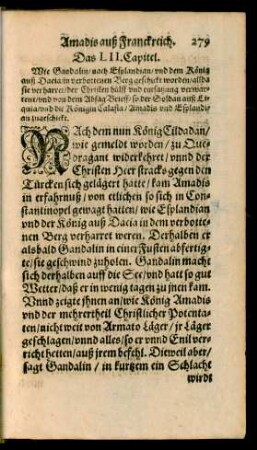 Amadis auß Franckreich. 279
Das LII. Capitel.
Wie Gandalin/ nach Esplandian/ vnd dem König
auß Dacia in verbottenen Berg geschickt worden/ allda
sie verharret/ der Christen hülff vnd entsatzung verwar-
ten/ vnd von dem
vnd die Königin Calafia/ Amadis vnd Esplandi-
an zugeschickt.
NAch dem nun König Cildadan/
wie gemeldt worden/ zu Que-
dragant widerkehret/ vnnd der
Christen Heer stracks gegen den
Türcken sich gelägert hatte/ kam Amadis
in erfahrnuß/ von etlichen so sich in Con-
stantinopel gewagt hatten/ wie Esplandian
vnd der König auß Dacia in dem verbotte-
nen Berg verharret weren. Derhalben er
alsbald Gandalin in einer Fusten abfertig-
te/ sie geschwind zuholen. Gandalin macht
sich derhalben auff die See/ vnd hatt so gut
Wetter/ daß er in wenig tagen zu jnen kam.
Vnnd zeigte jhnen an/ wie König Amadis
vnd der mehrertheil Christlicher Potenta-
ten/ nicht weit von Armato Läger/ jr Läger
geschlagen/ vnnd alles/ so er vnnd Enil ver-
richt hetten/ auß jrem befehl. Dieweil aber/
sagt Gandalin/ in kurtzem ein Schlacht
wirdt